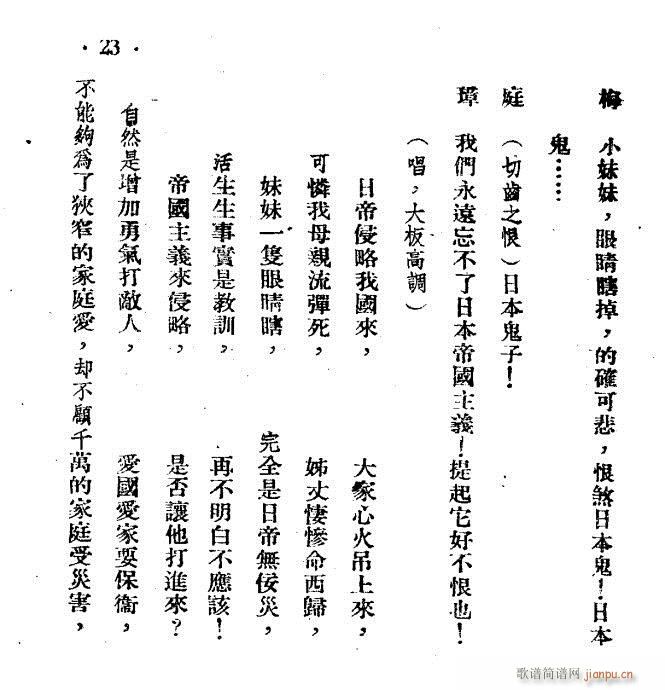 · 23 ·
梅　小妹妹，眼睛瞎掉，的確可悲，恨煞日本鬼！日本
鬼……
庭　（切齒之恨）日本鬼子！
璋　我們永遠忘不了日本帝國主義！提起它好不恨也！
（唱，大板高調）
日帝侵略我國來，　大家心火吊上來，
可憐我母親流彈死，　姊丈悽慘命西歸，
妹妹一隻眼睛瞎，　完全是日帝無侫災，
活生生事實是教訓，　再不明白不應該！
帝國主義來侵略，　是否讓他打進來？
自然是增加勇氣打敵人，　愛國愛家要保衞，
不能夠爲了狹窄的家庭愛，却不顧千萬的家庭受災害，
歌谱简谱网
jianpu.cn